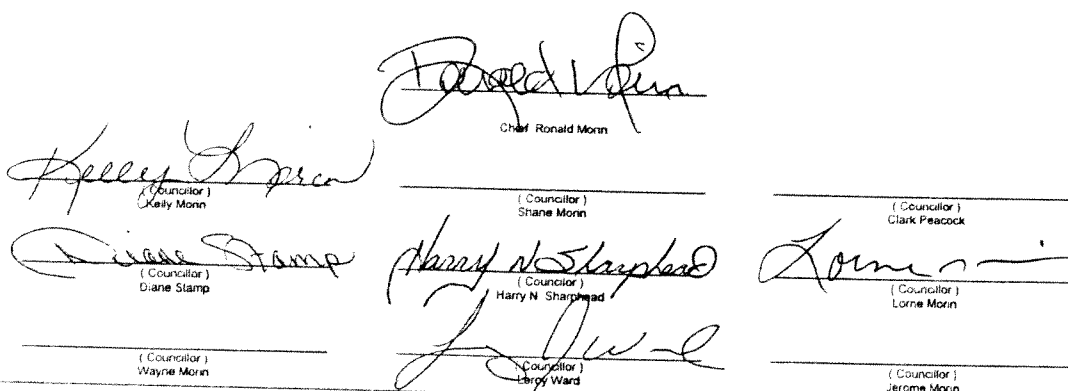 Ronald Morin
Chief Ronald Morin
Kelly Morin
( Councillor )
Kelly Morin
( Councillor )
Shane Morin
( Councillor )
Clark Peacock
Diane Stamp
( Councillor )
Diane Stamp
Harry N Sharphead
( Councillor )
Harry N Sharphead
Lorne
( Councillor )
Lorne Morin
( Councillor )
Wayne Morin
( Councillor )
Leroy Ward
( Councillor )
Jerome Morin